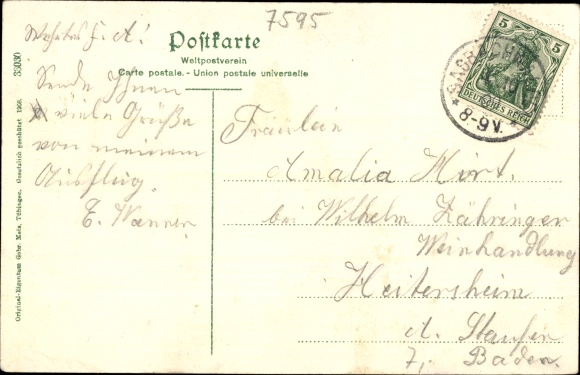 7595
Postkarte
Weltpostverein
Carte postale. - Union postale universelle
33030
Original-Eigentum Gebr. Metz, Tübingen. Gesetzlich geschützt 1908.
Sende Ihnen
viele Grüße
von meinem
Ausflug.
E. Wanner
5 5
DEUTSCHES REICH
8-9V.
Fräulein
Amalia Hirt.
bei Wilhelm Zähringer
Weinhandlung
Heitersheim
A. Staufen
7, Baden.